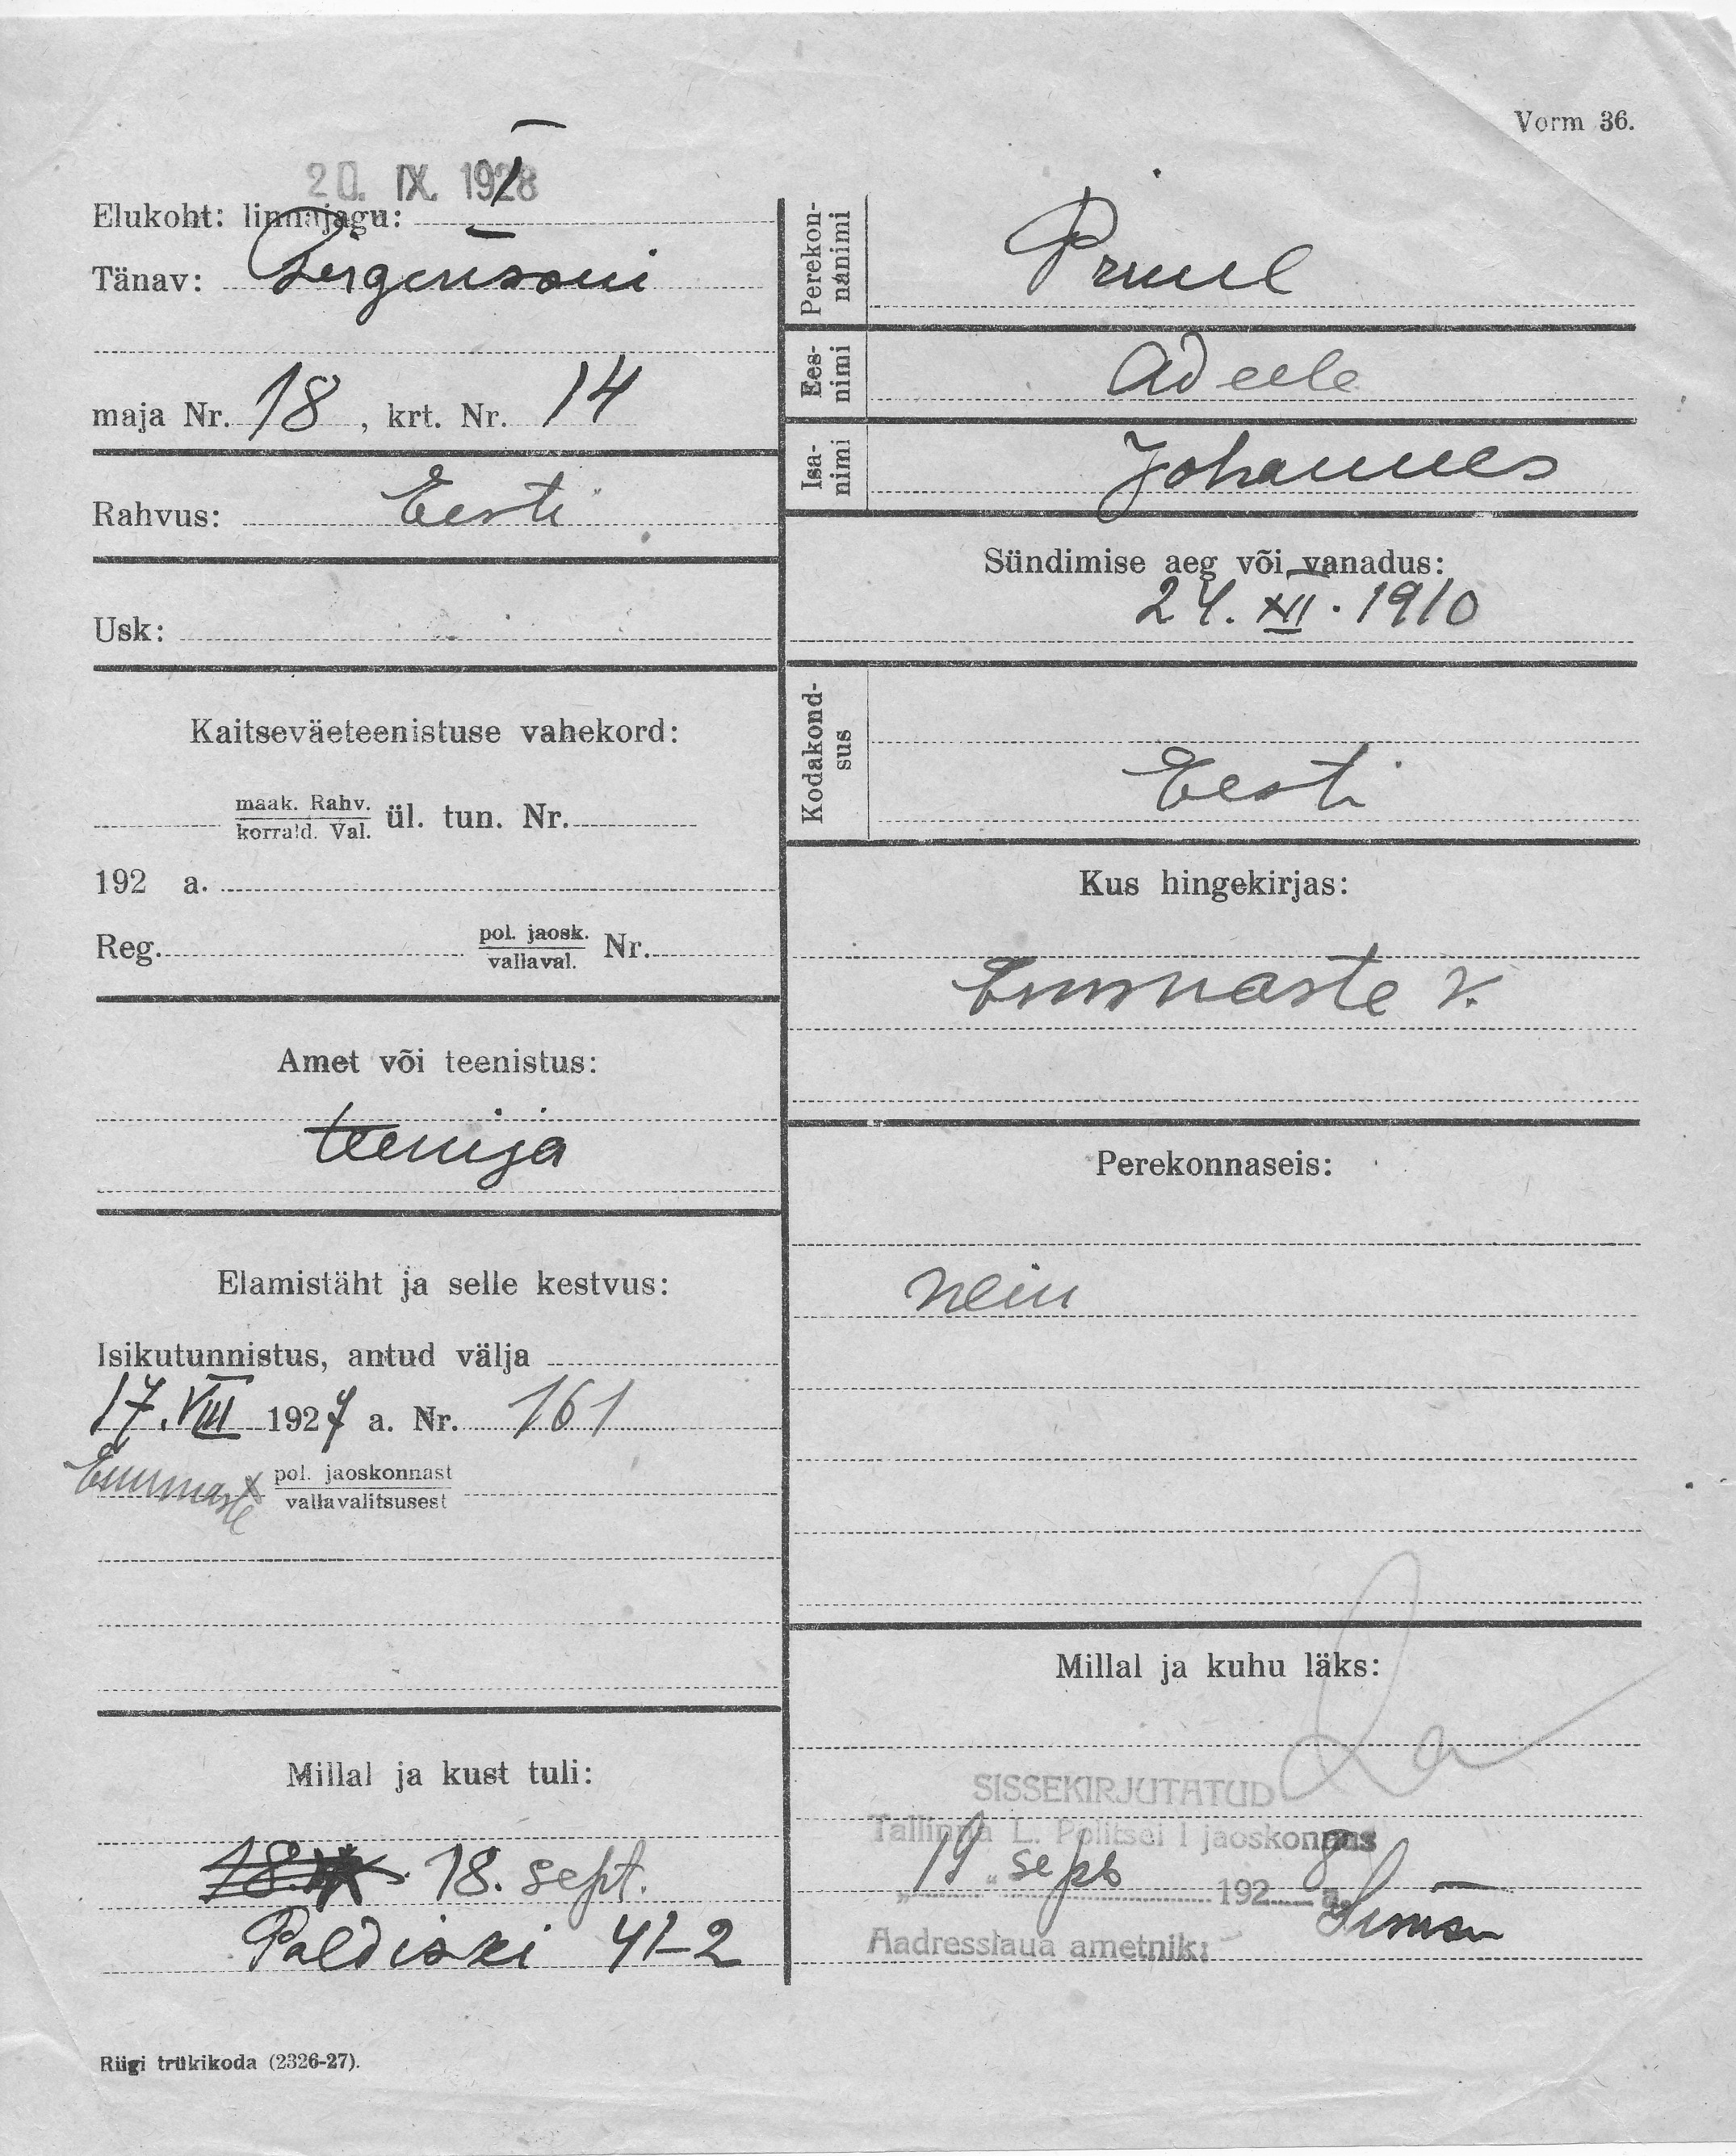 Vorm 36.
20. IX. 1928
Elukoht: linnajagu: I
Tänav:
maja Nr. 18, krt. Nr. 14
Rahvus: Eesti
Usk:
Kaitseväeteenistuse vahekord:
maak. Rahv.
korrald. Val. ül. tun. Nr.
192 a.
Reg. pol. jaosk.
vallaval. Nr.
Amet või teenistus:
teenija
Elamistäht ja selle kestvus:
Isikutunnistus, antud välja
17. VIII 1927 a. Nr. 161
Emmaste pol. jaoskonnast
vallavalitsusest
Millal ja kust tuli:
18. sept.
Paldiski 41-2
Riigi trükikoda (2326-27).
Perekon-
nanimi
Ees-
nimi Adeele
Isa-
nimi Johannes
Sündimise aeg või vanadus:
24. XII. 1910
Kodakond-
sus Eesti
Kus hingekirjas:
Emmaste v.
Perekonnaseis:
neiu
Millal ja kuhu läks:
SISSEKIRJUTATUD
Tallinna L. Politsei I jaoskonnas
"19" sept 1928 a.
Aadresslaua ametnik: